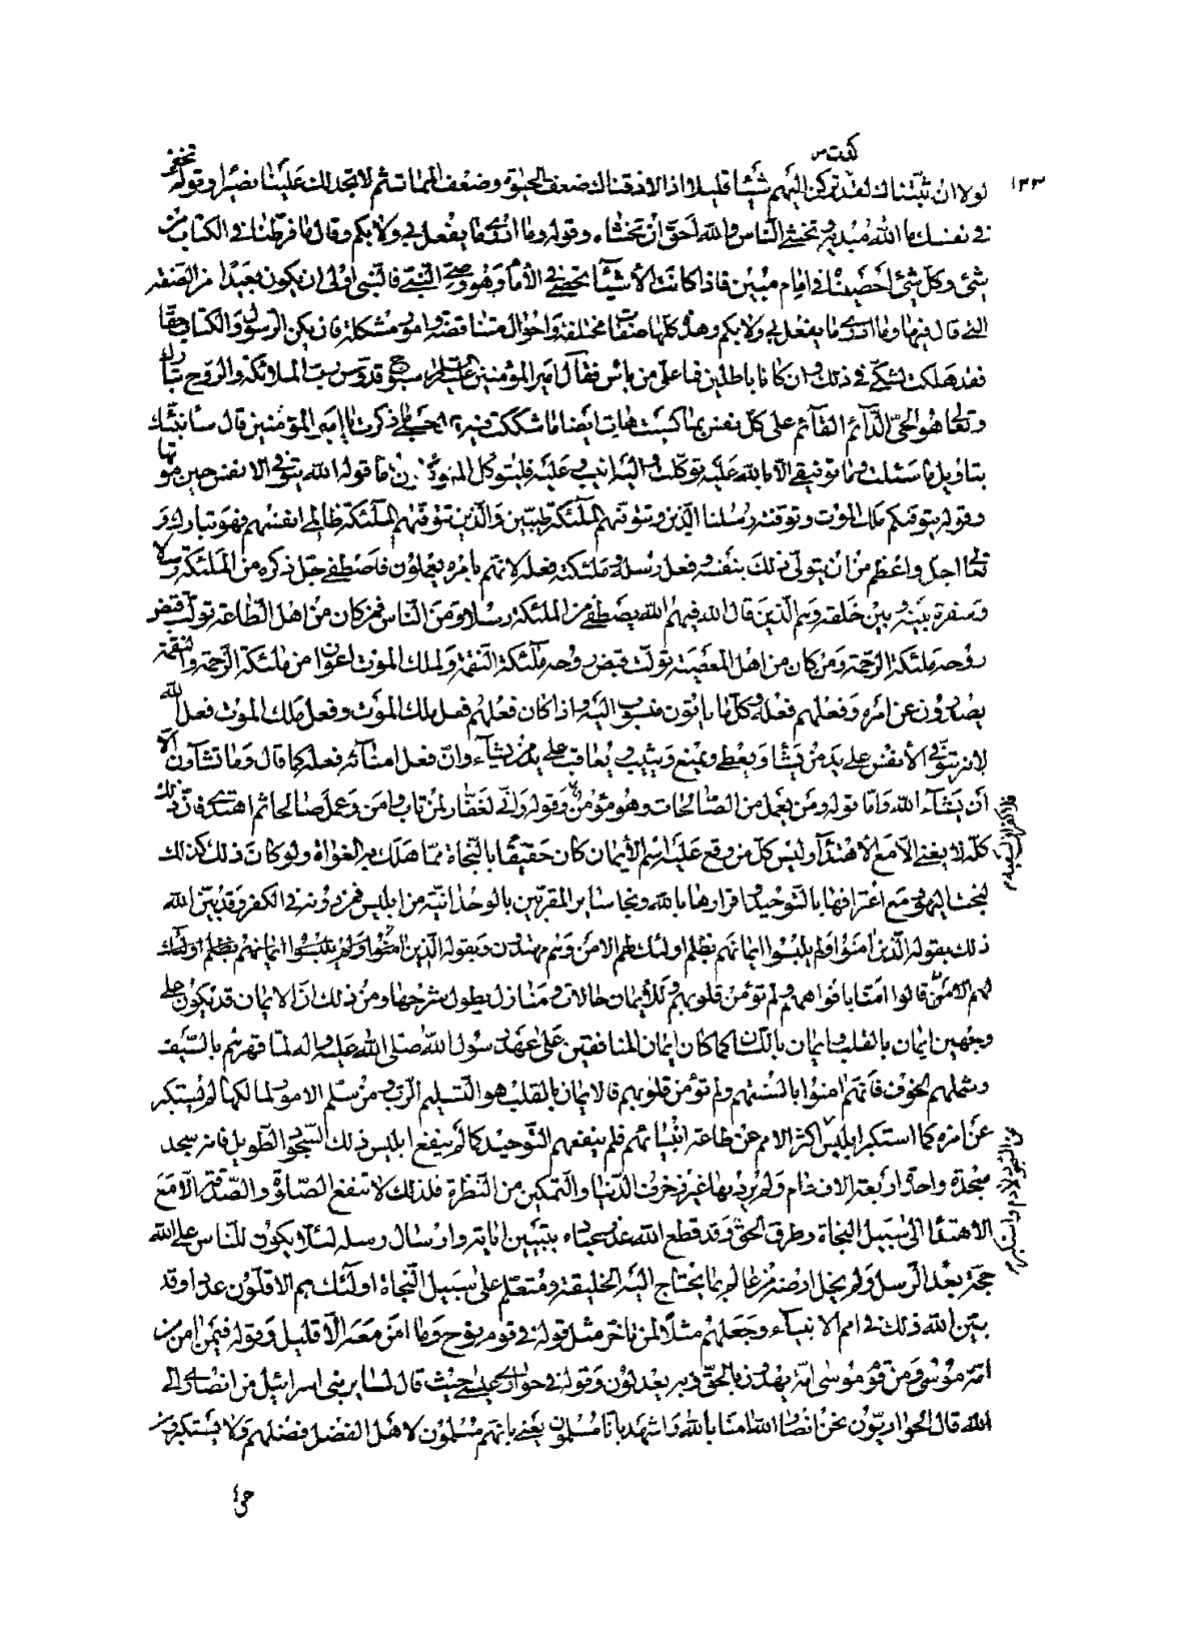 ١٣٣
كدت ص
لولا ان ثبتناك لقد تركن اليهم شيئا قليلا اذا لاذقناك ضعف الحيوة وضعف الممات ثم لا تجد لك علينا نصيرا وقوله تخفى
في نفسك ما الله مبديه وتخشى الناس والله احق ان تخشاه وقوله وما ادرى ما يفعل بي ولا بكم وقال ما فرطنا في الكتاب من
شيء وكل شيء احصيناه في امام مبين فاذا كانت الاشياء تحصى في الامام وهو وصى النبي فالنبي اولى ان يكون بعيدا من الصفة
التي قال فيها وما ادرى ما يفعل بي ولا بكم وهذه كلها صفات مختلفة واحوال متناقضة وامور مشكلة فان يكن الرسول والكتاب حقا
فقد هلكت لشكى في ذلك وان كانا باطلين فما على من باس فقال امير المؤمنين عليه السلام سبوح قدوس رب الملائكة والروح تبارك
وتعالى هو الحي الدائم القائم على كل نفس بما كسبت هات ايضا ما شككت فيه قال حسبي ما ذكرت يا امير المؤمنين قال سانبئك
بتاويل ما سئلت وما توفيقي الا بالله عليه توكلت واليه انيب وعليه فليتوكل المتوكلون فاما قوله الله يتوفى الانفس حين موتها
وقوله يتوفيكم ملك الموت وتوفته رسلنا والذين تتوفيهم الملئكة طيبين والذين تتوفيهم الملئكة ظالمي انفسهم فهو تبارك و
تعالى اجل واعظم من ان يتولى ذلك بنفسه وفعل رسله وملئكته فعله لانهم بامره يعملون فاصطفى جل ذكره من الملئكة رسلا
وسفرة بينه وبين خلقه وهم الذين قال الله فيهم الله يصطفى من الملئكة رسلا ومن الناس فمن كان من اهل الطاعة تولت قبض
روحه ملئكة الرحمة ومن كان من اهل المعصية تولت قبض روحه ملئكة النقمة ولملك الموت اعوان من ملئكة الرحمة والنقمة
يصدرون عن امره وفعلهم فعله وكل ما ياتون منسوب اليه واذا كان فعلهم فعل ملك الموت وفعل ملك الموت فعل الله
لانه يتوفى الانفس على يد من يشاء ويعطى ويمنع ويثيب ويعاقب على يد من يشاء وان فعل امنائه فعله كما قال وما تشاؤن الا
ان يشاء الله واما قوله ومن يعمل من الصالحات وهو مؤمن وقوله واني لغفار لمن تاب وامن وعمل صالحا ثم اهتدى فان ذلك
كله لا يغنى الا مع الاهتداء وليس كل من وقع عليه اسم الايمان كان حقيقا بالنجاة مما هلك به الغواة ولو كان ذلك كذلك
لنجت اليهود مع اعترافها بالتوحيد واقرارها بالله ونجا ساير المقرين بالوحدانية من ابليس فمن دونه في الكفر وقد بين الله
ذلك بقوله الذين امنوا ولم يلبسوا ايمانهم بظلم اولئك لهم الامن وهم مهتدون وبقوله الذين امنوا ولم يلبسوا ايمانهم بظلم اولئك
لهم الامن قالوا امنا بافواههم ولم تؤمن قلوبهم وللايمان حالات ومنازل يطول شرحها ومن ذلك ان الايمان قد يكون على
وجهين ايمان بالقلب وايمان باللسان كما كان ايمان المنافقين على عهد رسول الله صلى الله عليه واله لما قهرهم بالسيف
وشملهم الخوف فانهم امنوا بالسنتهم ولم تؤمن قلوبهم فالايمان بالقلب هو التسليم للرب ومن سلم الامور لمالكها لم يستكبر
عن امره كما استكبر ابليس واكثر الامم عن طاعة انبيائهم فلم ينفعهم التوحيد كما لم ينفع ابليس ذلك السجود الطويل فانه سجد
سجدة واحدة اربعة الاف عام ولم يرد بها غير زخرف الدنيا والتمكين من النظرة فلذلك لا تنفع الصلوة والصدقة الا مع
الاهتداء الى سبيل النجاة وطرق الحق وقد قطع الله عذر عباده بتبيين اياته وارسال رسله لئلا يكون للناس على الله
حجة بعد الرسل ولم يخل ارضه من عالم بما يحتاج اليه الخليقة ومتعلم على سبيل النجاة اولئك هم الاقلون عددا وقد
بين الله ذلك في امم الانبياء وجعلهم مثلا لمن تاخر مثل قوله في قوم نوح وما امن معه الا قليل وقوله فيمن امن من
امة موسى ومن قوم موسى امة يهدون بالحق وبه يعدلون وقوله في حوارى عيسى حيث قال لساير بني اسرائيل من انصارى الى
الله قال الحواريون نحن انصار الله امنا بالله واشهد بانا مسلمون يعنى بانهم مسلمون لاهل الفضل فضلهم ولا يستكبرون